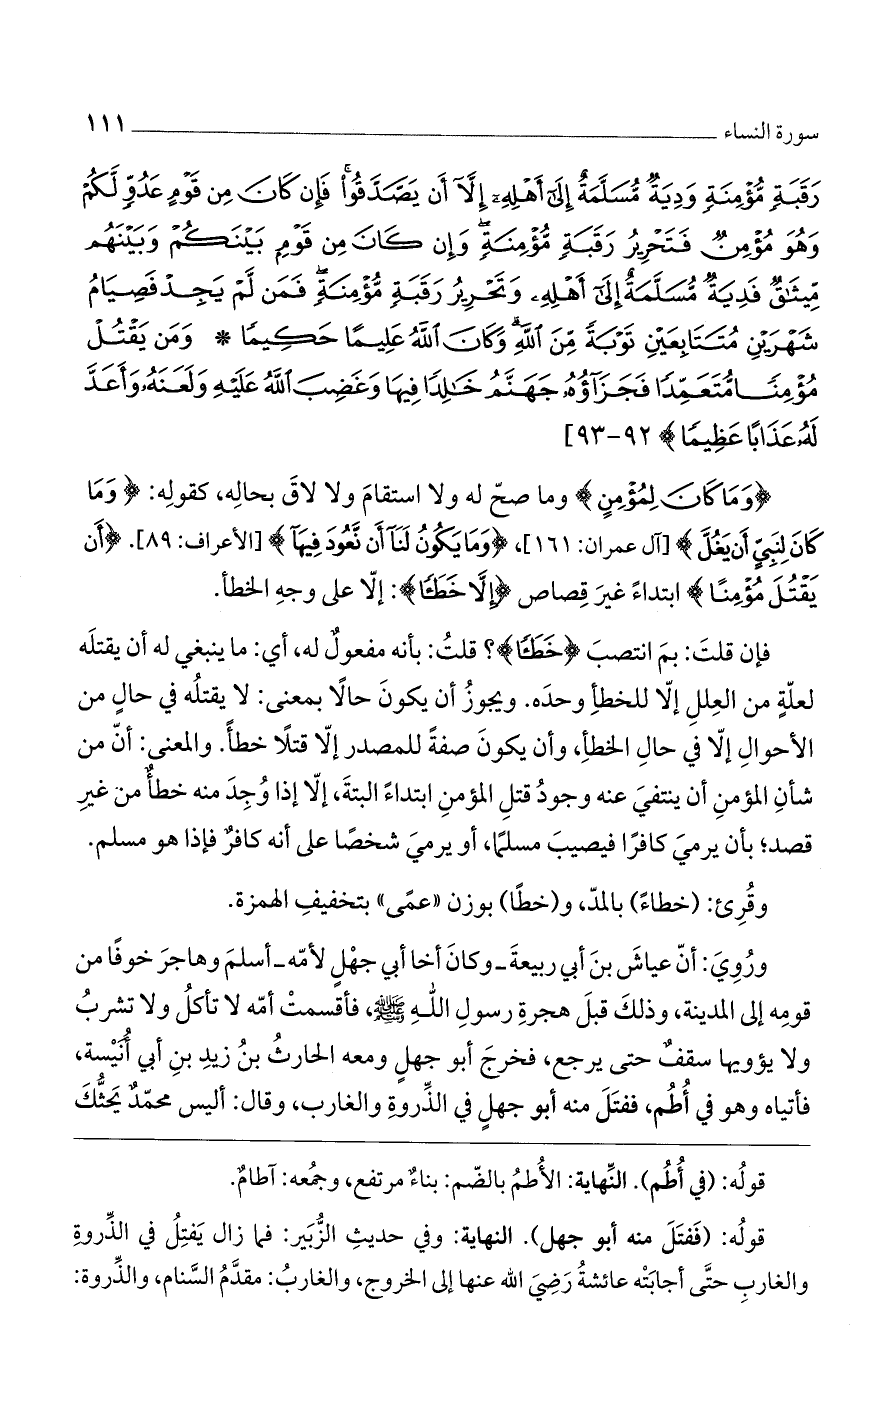 سورة النساء ١١١
رَقَبَةٍ مُّؤْمِنَةٍ وَدِيَةٌ مُّسَلَّمَةٌ إِلَىٰٓ أَهْلِهِۦٓ إِلَّآ أَن يَصَّدَّقُوا۟ ۚ فَإِن كَانَ مِن قَوْمٍ عَدُوٍّ لَّكُمْ
وَهُوَ مُؤْمِنٌ فَتَحْرِيرُ رَقَبَةٍ مُّؤْمِنَةٍ ۖ وَإِن كَانَ مِن قَوْمٍ بَيْنَكُمْ وَبَيْنَهُم
مِّيثَٰقٌ فَدِيَةٌ مُّسَلَّمَةٌ إِلَىٰٓ أَهْلِهِۦ وَتَحْرِيرُ رَقَبَةٍ مُّؤْمِنَةٍ ۖ فَمَن لَّمْ يَجِدْ فَصِيَامُ
شَهْرَيْنِ مُتَتَابِعَيْنِ تَوْبَةً مِّنَ ٱللَّهِ ۗ وَكَانَ ٱللَّهُ عَلِيمًا حَكِيمًا * وَمَن يَقْتُلْ
مُؤْمِنًا مُّتَعَمِّدًا فَجَزَآؤُهُۥ جَهَنَّمُ خَٰلِدًا فِيهَا وَغَضِبَ ٱللَّهُ عَلَيْهِ وَلَعَنَهُۥ وَأَعَدَّ
لَهُۥ عَذَابًا عَظِيمًا﴾ ٩٢-٩٣]
﴿وَمَا كَانَ لِمُؤْمِنٍ﴾ وما صحّ له ولا استقامَ ولا لاقَ بحالِه، كقولِه: ﴿وَمَا
كَانَ لِنَبِيٍّ أَن يَغُلَّ﴾ [آل عمران: ١٦١]، ﴿وَمَا يَكُونُ لَنَآ أَن نَّعُودَ فِيهَآ﴾ [الأعراف: ٨٩]. ﴿أَن
يَقْتُلَ مُؤْمِنًا﴾ ابتداءً غيرَ قِصاص ﴿إِلَّا خَطَـًٔا﴾: إلّا على وجهِ الخطأ.
فإن قلتَ: بمَ انتصبَ ﴿خَطَـًٔا﴾؟ قلتُ: بأنه مفعولٌ له، أي: ما ينبغي له أن يقتلَه
لعلّةٍ من العِللِ إلّا للخطأِ وحدَه. ويجوزُ أن يكونَ حالًا بمعنى: لا يقتلُه في حالٍ من
الأحوالِ إلّا في حالِ الخطأِ، وأن يكونَ صفةً للمصدر إلّا قتلًا خطأً. والمعنى: أنّ من
شأنِ المؤمنِ أن ينتفيَ عنه وجودُ قتلِ المؤمنِ ابتداءً البتةَ، إلّا إذا وُجِدَ منه خطأٌ من غيرِ
قصد؛ بأن يرميَ كافرًا فيصيبَ مسلمًا، أو يرميَ شخصًا على أنه كافرٌ فإذا هو مسلم.
وقُرِئ: (خطاءً) بالمدّ، و(خطًا) بوزن «عمًى» بتخفيفِ الهمزة.
ورُوِيَ: أنّ عياشَ بنَ أبي ربيعةَ ـ وكانَ أخا أبي جهْلٍ لأمّه ـ أسلمَ وهاجرَ خوفًا من
قومِه إلى المدينة، وذلكَ قبلَ هجرةِ رسولِ اللهِ ﷺ، فأقسمتْ أمّه لا تأكلُ ولا تشربُ
ولا يؤويها سقفٌ حتى يرجع، فخرجَ أبو جهلٍ ومعه الحارثُ بنُ زيدِ بنِ أبي أُنَيْسة،
فأتياه وهو في أُطُم، ففتَلَ منه أبو جهلٍ في الذِّروةِ والغارب، وقال: أليس محمّدٌ يَحثُّكَ
قولُه: (في أُطُم). النِّهاية: الأُطمُ بالضّم: بناءٌ مرتفع، وجمْعه: آطامٌ.
قولُه: (فَفتَلَ منه أبو جهل). النهاية: وفي حديثِ الزُّبَير: فما زال يَفتِلُ في الذِّروةِ
والغاربِ حتَّى أجابَتْه عائشةُ رَضِيَ الله عنها إلى الخروج، والغاربُ: مقدَّمُ السَّنام، والذِّروة: